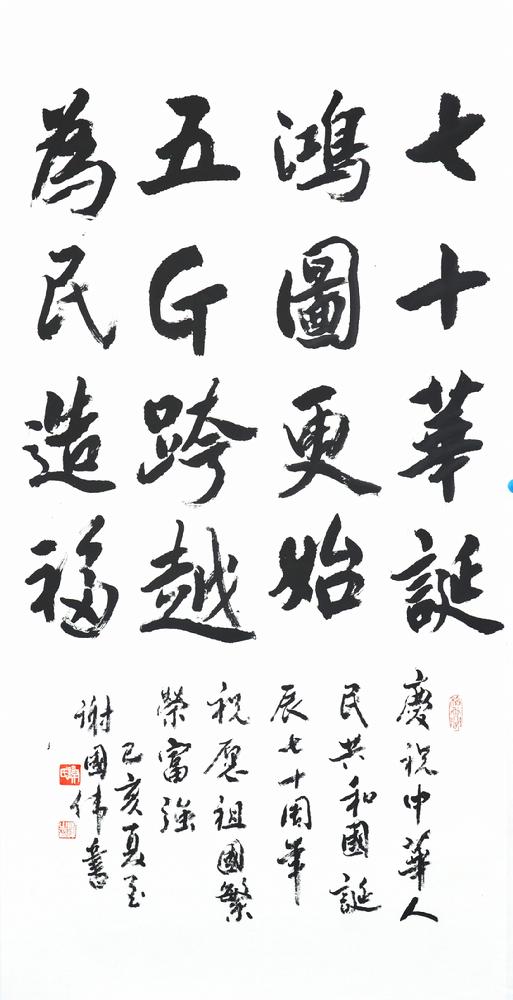 七十華誕
鴻圖更始
五G跨越
為民造福
慶祝中華人
民共和國誕
辰七十周年
祝愿祖國繁
榮富強
己亥夏至
謝國偉書